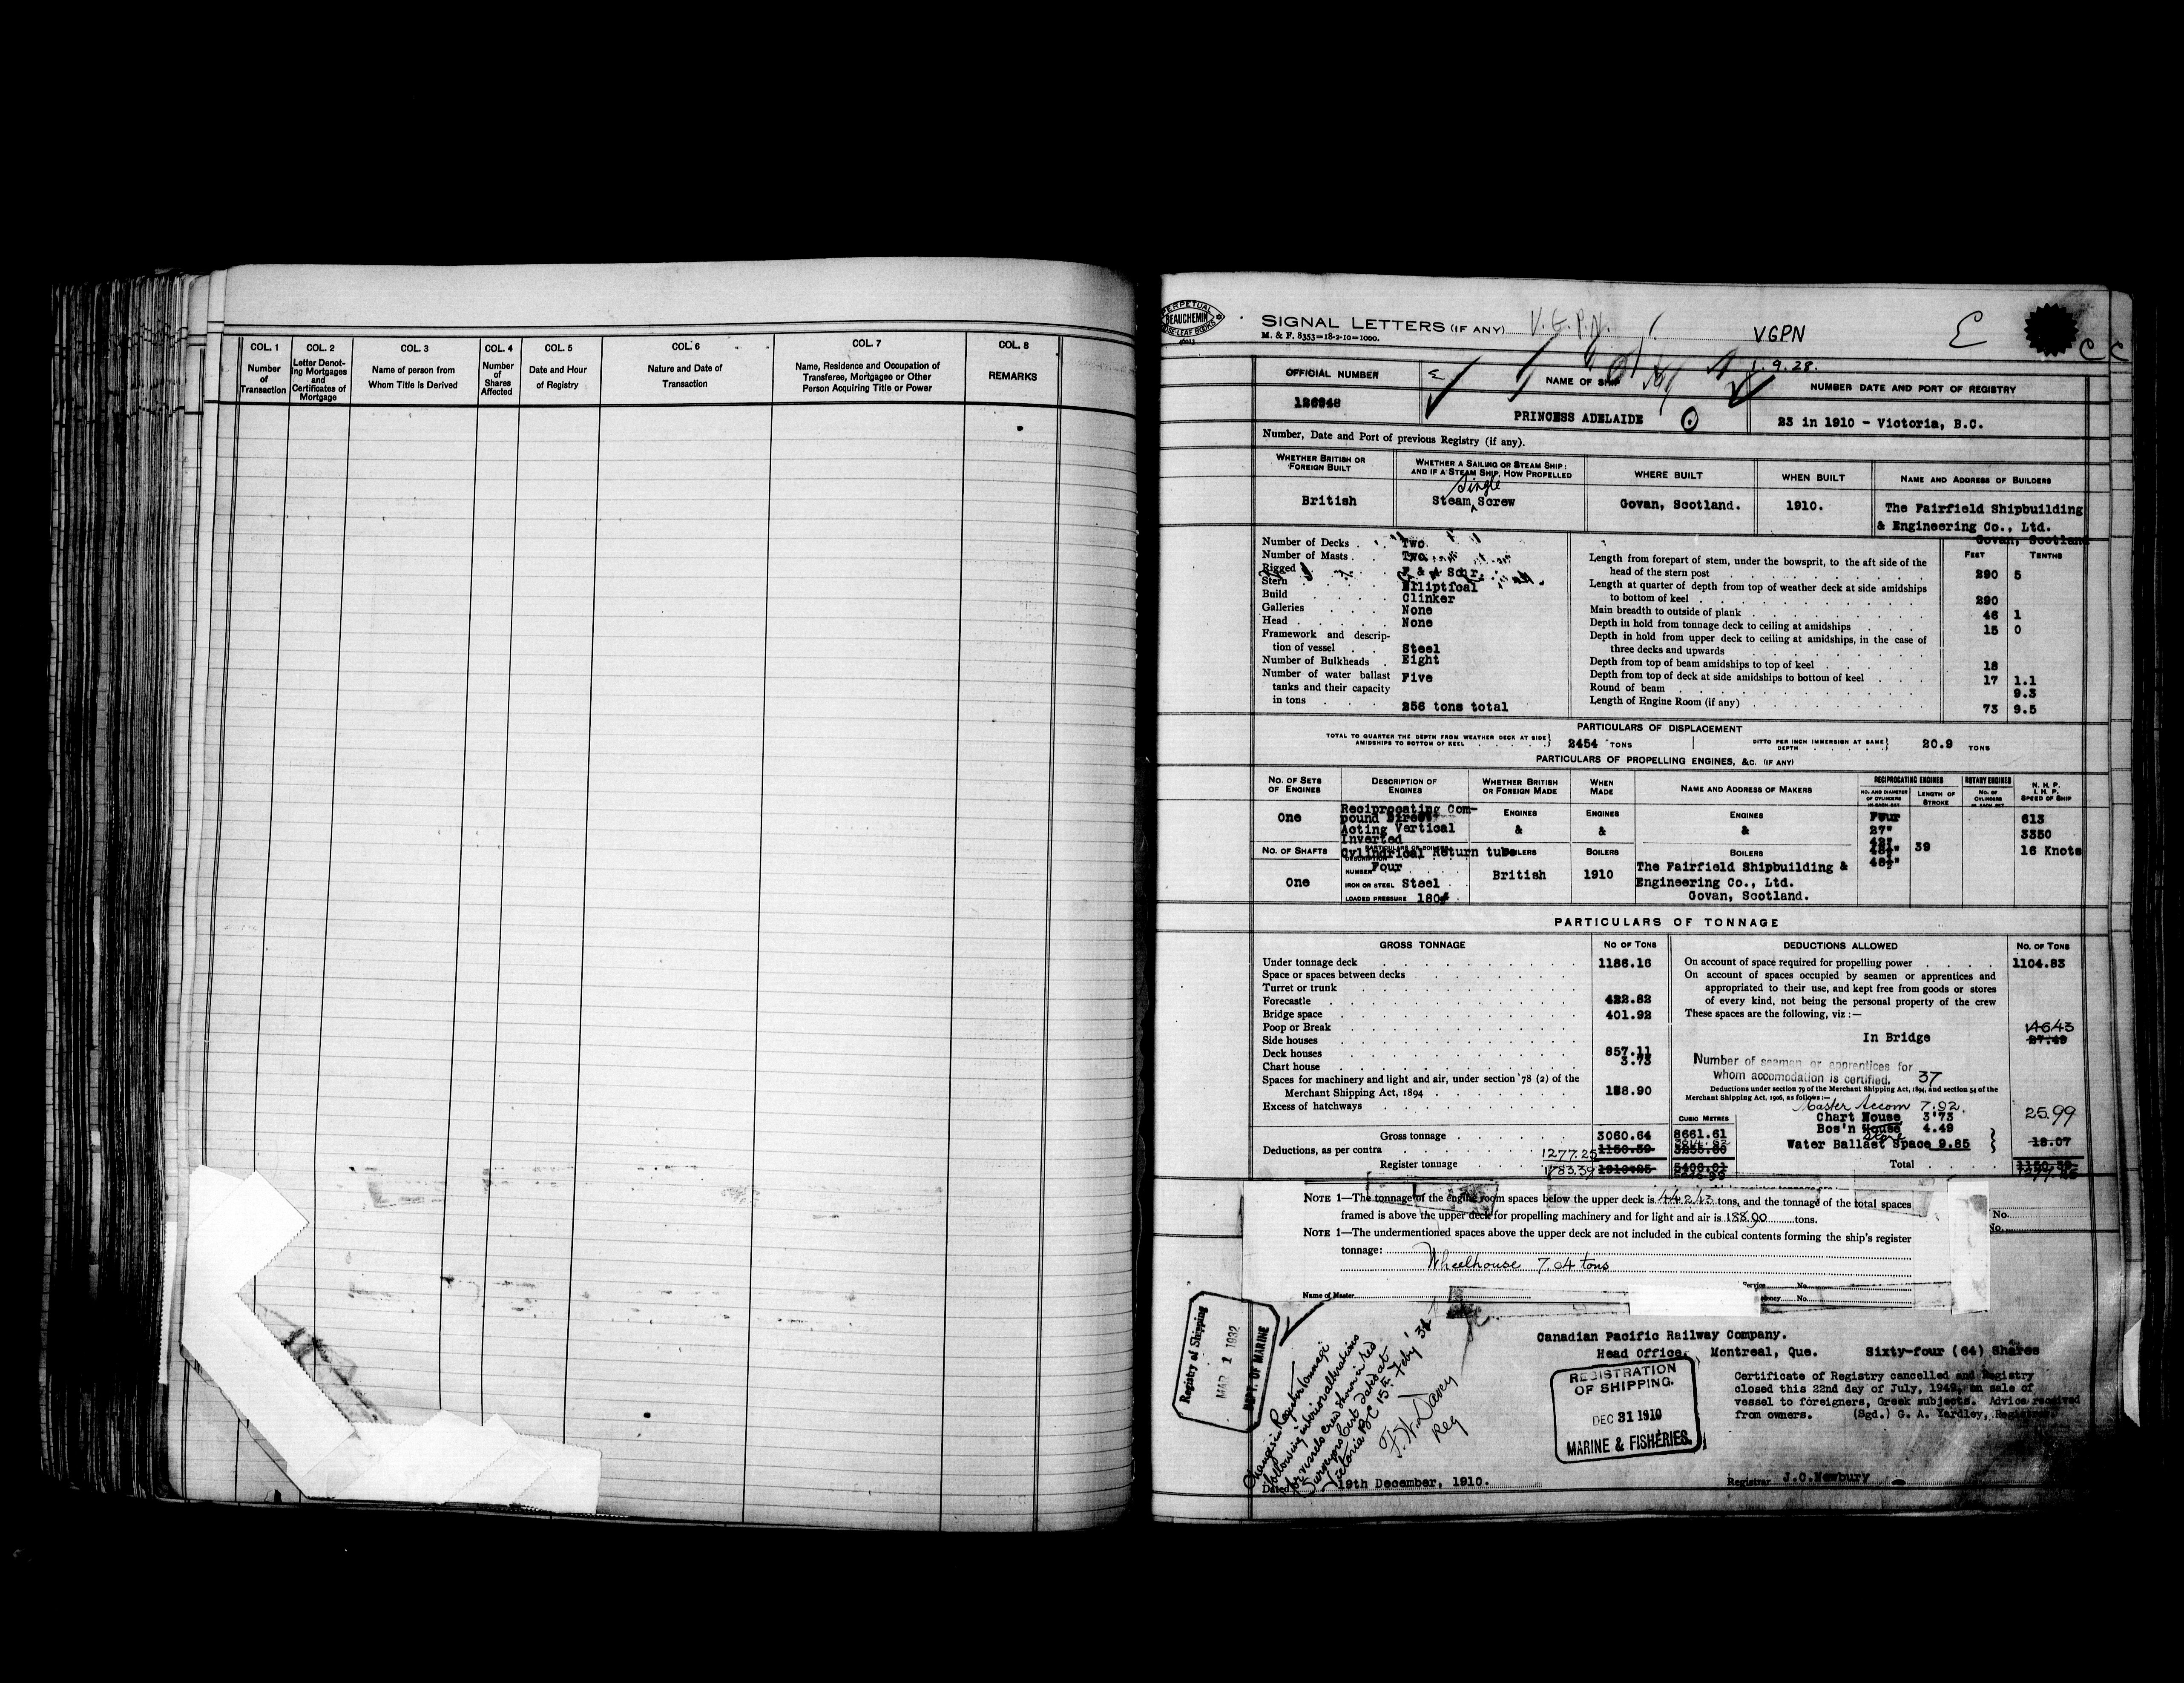 COL. 1
Number
of
Transaction
COL. 2
Letter Denot-
ing Mortgages
and
Certificates of
Mortgage
COL. 3
Name of person from
Whom Title is Derived
COL. 4
Number
of
Shares
Affected
COL. 5
Date and Hour
of Registry
COL. 6
Nature and Date of
Transaction
COL. 7
Name, Residence and Occupation of
Transferee, Mortgagee or Other
Person Acquiring Title or Power
COL. 8
REMARKS
PERPETUAL
BEAUCHEMIN
LOOSE LEAF BOOKS
SIGNAL LETTERS (IF ANY) V.G.P.N. VGPN
M. & F. 8353=18-2-10=1000.
1.9.28.
OFFICIAL NUMBER
126948
NAME OF SHIP
PRINCESS ADELAIDE
NUMBER DATE AND PORT OF REGISTRY
23 in 1910 - Victoria, B.C.
Number, Date and Port of previous Registry (if any).
WHETHER BRITISH OR
FOREIGN BUILT
British
WHETHER A SAILING OR STEAM SHIP:
AND IF A STEAM SHIP, HOW PROPELLED
Single
Steam Screw
WHERE BUILT
Govan, Scotland.
WHEN BUILT
1910.
NAME AND ADDRESS OF BUILDERS
The Fairfield Shipbuilding
& Engineering Co., Ltd.
Govan, Scotland
Number of Decks Two
Number of Masts Two
Rigged F & A Schr.
Stern Elliptical
Build Clinker
Galleries None
Head None
Framework and descrip-
tion of vessel Steel
Number of Bulkheads Eight
Number of water ballast Five
tanks and their capacity
in tons 256 tons total
FEET TENTHS
Length from forepart of stem, under the bowsprit, to the aft side of the
head of the stern post 290 5
Length at quarter of depth from top of weather deck at side amidships
to bottom of keel 290
Main breadth to outside of plank 46 1
Depth in hold from tonnage deck to ceiling at amidships 15 0
Depth in hold from upper deck to ceiling at amidships, in the case of
three decks and upwards
Depth from top of beam amidships to top of keel 18
Depth from top of deck at side amidships to bottom of keel 17 1.1
Round of beam 9.3
Length of Engine Room (if any) 73 9.5
PARTICULARS OF DISPLACEMENT
TOTAL TO QUARTER THE DEPTH FROM WEATHER DECK AT SIDE
AMIDSHIPS TO BOTTOM OF KEEL 2454 TONS
DITTO PER INCH IMMERSION AT SAME
DEPTH 20.9 TONS
PARTICULARS OF PROPELLING ENGINES, &C. (IF ANY)
NO. OF SETS
OF ENGINES
One
NO. OF SHAFTS
One
DESCRIPTION OF
ENGINES
Reciprocating Com-
pound Direct
Acting Vertical
Inverted
PARTICULARS OF BOILERS
Cylindrical Return tube
DESCRIPTION
NUMBER Four
IRON OR STEEL Steel
LOADED PRESSURE 180#
WHETHER BRITISH
OR FOREIGN MADE
ENGINES
&
BOILERS
British
WHEN
MADE
ENGINES
&
BOILERS
1910
NAME AND ADDRESS OF MAKERS
ENGINES
&
BOILERS
The Fairfield Shipbuilding &
Engineering Co., Ltd.
Govan, Scotland.
RECIPROCATING ENGINES
NO. AND DIAMETER
OF CYLINDERS
IN EACH SET
Four
27"
LENGTH OF
STROKE
39
ROTARY ENGINES
NO. OF
CYLINDERS
IN EACH SET
N. H. P.
I. H. P.
SPEED OF SHIP
613
3350
16 Knots
PARTICULARS OF TONNAGE
GROSS TONNAGE NO OF TONS
Under tonnage deck 1186.16
Space or spaces between decks
Turret or trunk
Forecastle 422.82
Bridge space 401.92
Poop or Break
Side houses
Deck houses 857.11
Chart house 3.73
Spaces for machinery and light and air, under section 78 (2) of the
Merchant Shipping Act, 1894 188.90
Excess of hatchways
CUBIC METRES
Gross tonnage 3060.64 8661.61
Deductions, as per contra 1277.25 1150.39 3255.60
Register tonnage 1783.39 1910.25
DEDUCTIONS ALLOWED NO. OF TONS
On account of space required for propelling power 1104.83
On account of spaces occupied by seamen or apprentices and
appropriated to their use, and kept free from goods or stores
of every kind, not being the personal property of the crew
These spaces are the following, viz :—
146.43
In Bridge 27.49
Number of seamen or apprentices for
whom accomodation is certified. 37
Deductions under section 79 of the Merchant Shipping Act, 1894, and section 54 of the
Merchant Shipping Act, 1906, as follows :—
Master Accom 7.92.
Chart House 3.73 25.99
Bos'n House 4.49
Store
Water Ballast Space 9.85 18.07
Total 1150.39
1277.25
NOTE 1—The tonnage of the engine room spaces below the upper deck is 442.43 tons, and the tonnage of the total spaces
framed is above the upper deck for propelling machinery and for light and air is 188.90 tons.
NOTE 1—The undermentioned spaces above the upper deck are not included in the cubical contents forming the ship's register
tonnage:
Wheelhouse 7.04 tons
No.
No.
Service No.
No.
Name of Master
Registry of Shipping
MAR 1 1932
DEPT. OF MARINE
Change in Register tonnage
following interior alterations
for vessels crew shown in red
Surveyors Cert. dated at
Victoria BC 15th Feby '32
F.W. Davey
Reg
Canadian Pacific Railway Company.
Head Office, Montreal, Que. Sixty-four (64) Shares
REGISTRATION
OF SHIPPING.
DEC 31 1910
MARINE & FISHERIES.
Certificate of Registry cancelled and Registry
closed this 22nd day of July, 1949, on sale of
vessel to foreigners, Greek subjects. Advice received
from owners. (Sgd.) G. A. Yardley, Registrar
Dated 19th December, 1910.
Registrar J.C. Newbury